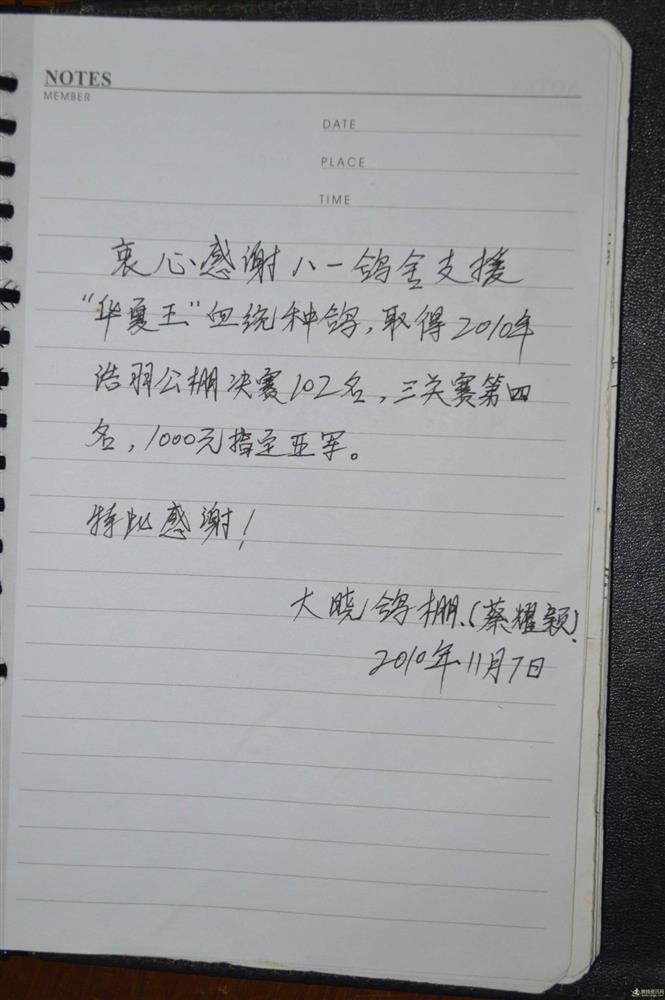 NOTES
MEMBER
DATE
PLACE
TIME
衷心感谢八一鸽舍支援
"华夏王"血统种鸽，取得2010年
浩羽公棚决赛102名，三关赛第四
名，1000元指定亚军。
特此感谢！
大晓鸽棚.(蔡耀颖)
2010年11月7日